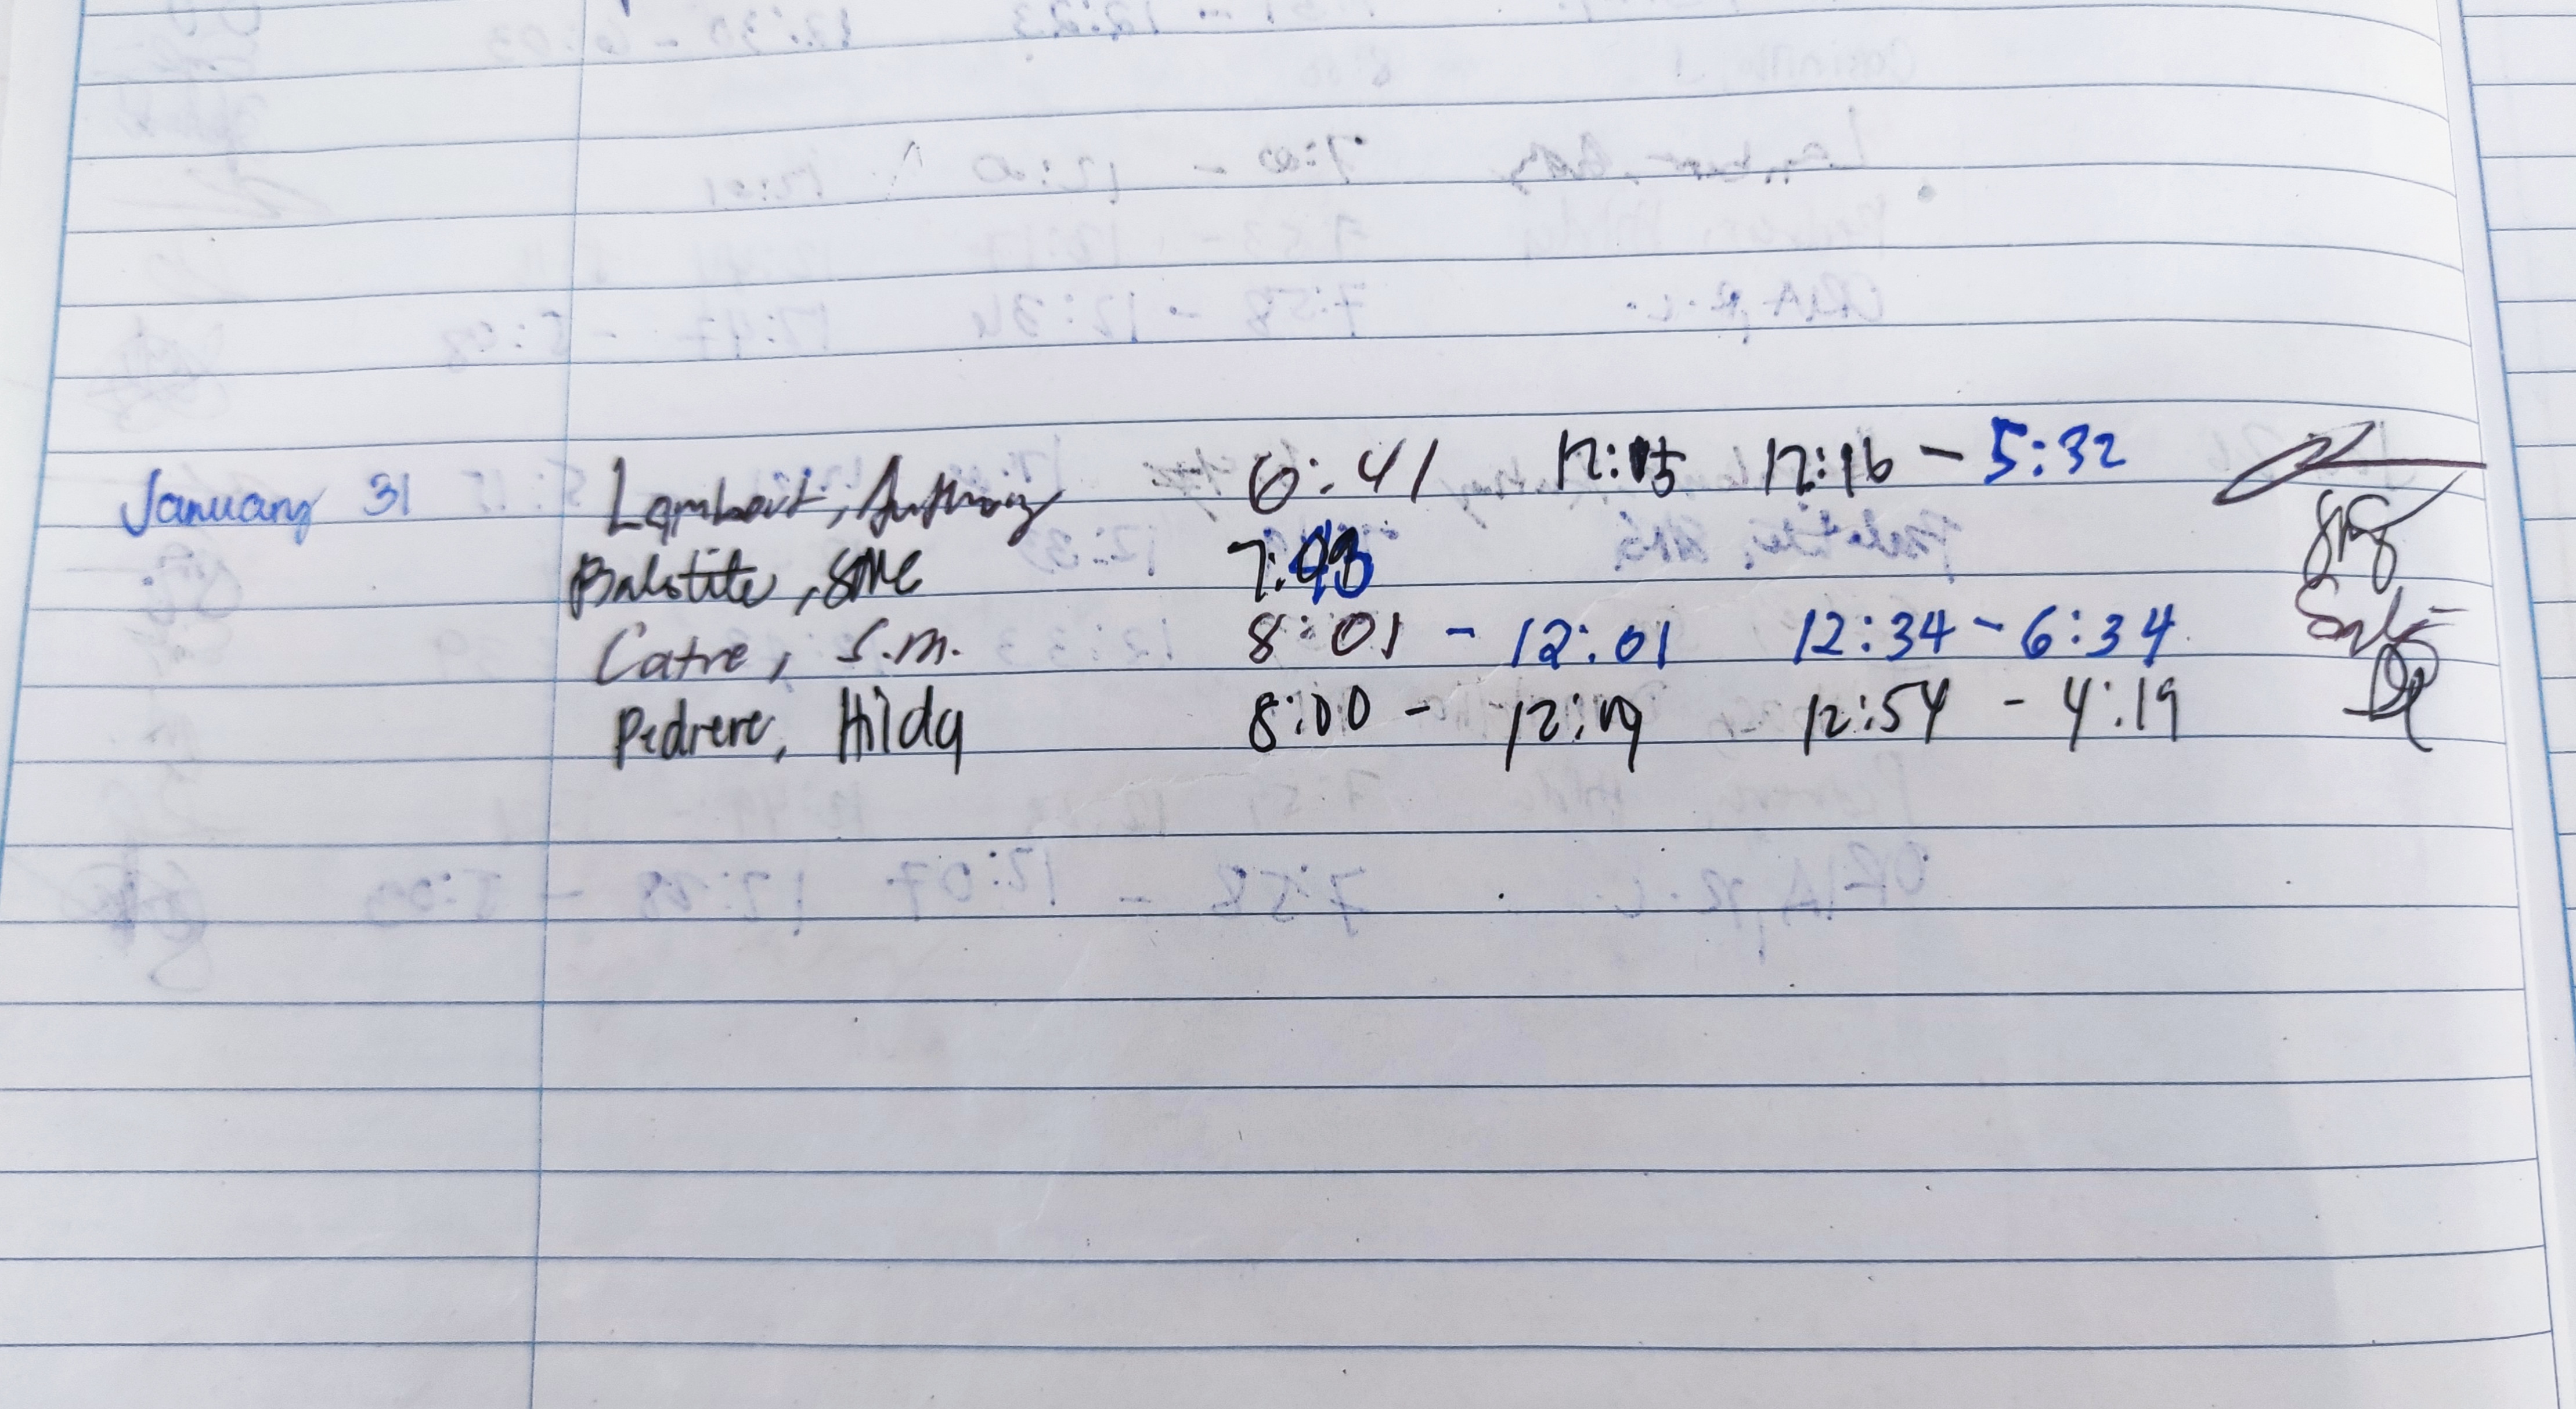 January 31 Lambert, Anthony 6:41 12:15 12:16 - 5:32
Balotite, SMC 7:43
Catre, S.M. 8:01 - 12:01 12:34 - 6:34
Pedrere, Hilda 8:00 - 12:19 12:54 - 4:19